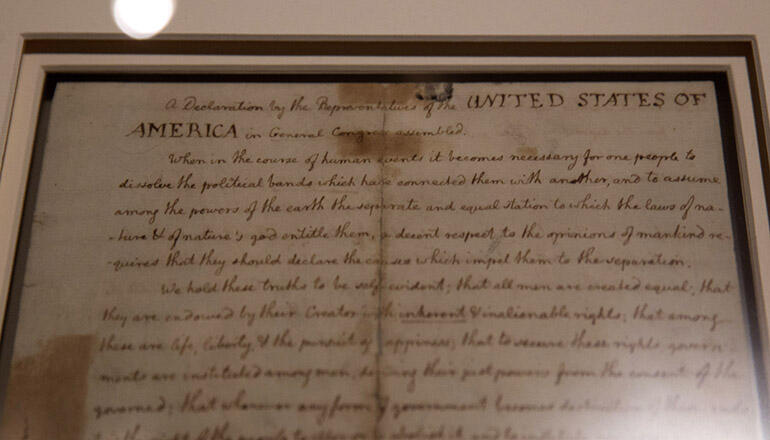 A Declaration by the Representatives of the UNITED STATES OF
AMERICA in General Congress assembled.
When in the course of human events it becomes necessary for one people to
dissolve the political bands which have connected them with another, and to assume
among the powers of the earth the separate and equal station to which the laws of na-
-ture & of nature's god entitle them, a decent respect to the opinions of mankind re-
-quires that they should declare the causes which impel them to the separation.
We hold these truths to be self evident; that all men are created equal; that
they are endowed by their Creator with inherent & inalienable rights; that among
these are life, liberty, & the pursuit of happiness; that to secure these rights govern-
-ments are instituted among men, deriving their just powers from the consent of the
governed; that whenever any form of government becomes destructive of these ends
the right of the people to alter or abolish it, and to